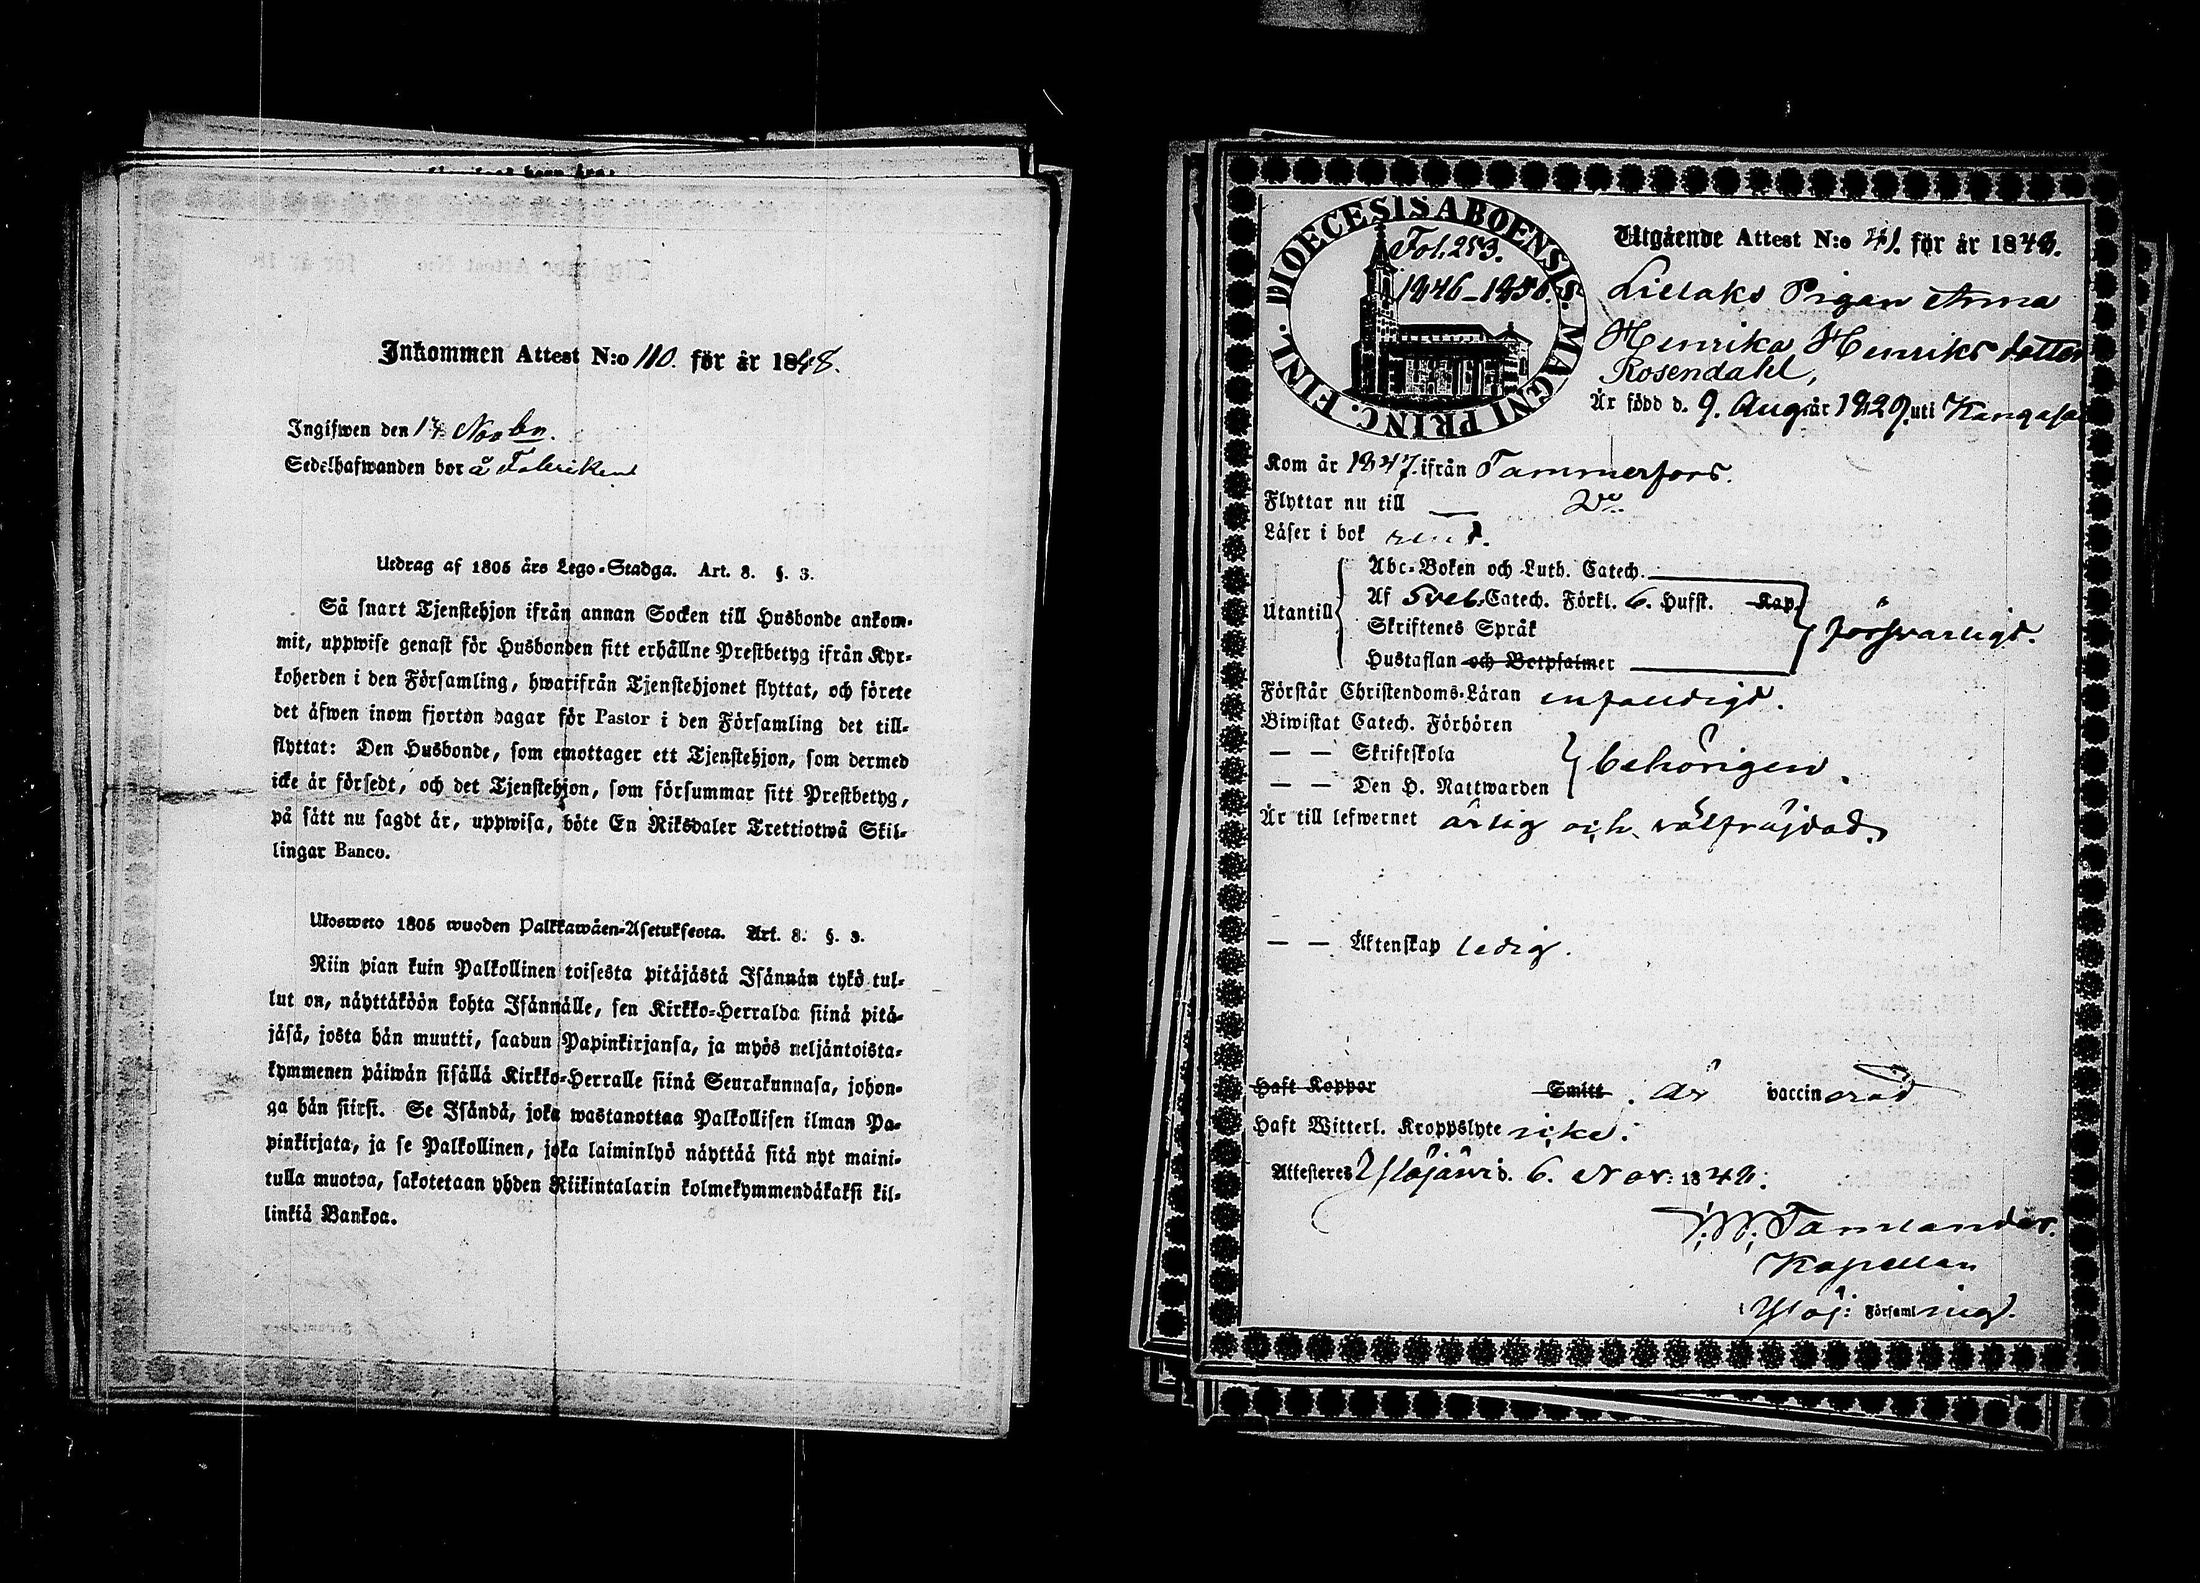 Inkommen Attest N:o 110. för år 1848.
Ingifwen den 17 Novbr.
Sedelhafwanden bor å Fabriken
Utdrag af 1805 års Lego-Stadga. Art. 8. §. 3.
Så snart Tjenstehjon ifrån annan Socken till Husbonde ankom-
mit, uppwise genast för Husbonden sitt erhållne Prestbetyg ifrån Kyr-
koherden i den Församling, hwarifrån Tjenstehjonet flyttat, och förete
det äfwen inom fjorton dagar för Pastor i den Församling det till-
flyttat: Den Husbonde, som emottager ett Tjenstehjon, som dermed
icke är försedt, och det Tjenstehjon, som försummar sitt Prestbetyg,
på sätt nu sagdt är, uppwisa, böte En Riksdaler Trettiotwå Skil-
lingar Banco.
Ulosweto 1805 wuoden Palkkawäen-Asetuksesta. Art. 8. §. 3.
Niin pian kuin Palkollinen toisesta pitäjästä Isännän tykö tul-
lut on, näyttäköön kohta Isännälle, sen Kirkko-Herralda siinä pitä-
jäsä, josta hän muutti, saadun Papinkirjansa, ja myös neljäntoista-
kymmenen päiwän sisällä Kirkko-Herralle siinä Seurakunnasa, johon-
ga hän siirsi. Se Isändä, joka wastanottaa Palkollisen ilman Pa-
pinkirjata, ja se Palkollinen, joka laiminlyö näyttää sitä nyt maini-
tulla muotoa, sakotetaan yhden Riikintalarin kolmekymmendäkaksi kil-
linkiä Bankoa.
DIOECESIS ABOENSIS. MAGNI PRINC. FINL.
Fol. 253.
1846–1856.
Utgående Attest N:o 41. för år 1848.
Lielaks Pigan Anna
Henrika Henriks dotter
Rosendahl,
Är född d. 9. Aug. år 1829. uti Kangasala
Kom år 1847. ifrån Tammerfors.
Flyttar nu till — Do
Läser i bok rent.
Utantill
Abc-Boken och Luth. Catech.
Af Sveb. Catech. Förkl. 6. Hufst. Kap.
Skriftenes Språk
Hustaflan och Botpsalmer
försvarligt.
Förstår Christendoms-Läran enfaldigt.
Biwistat Catech. Förhören
— — Skriftskola
— — Den H. Nattwarden
behörigen.
Är till lefwernet ärlig och välfräjdad.
— — Äktenskap ledig.
Haft Koppor Smitt. är vaccinerad
Haft Witterl. Kroppslyte icke.
Attesteres Ylöjärvi d. 6. Nov: 1848.
Tamlander.
Kapellan
i Ylöj: Församling.